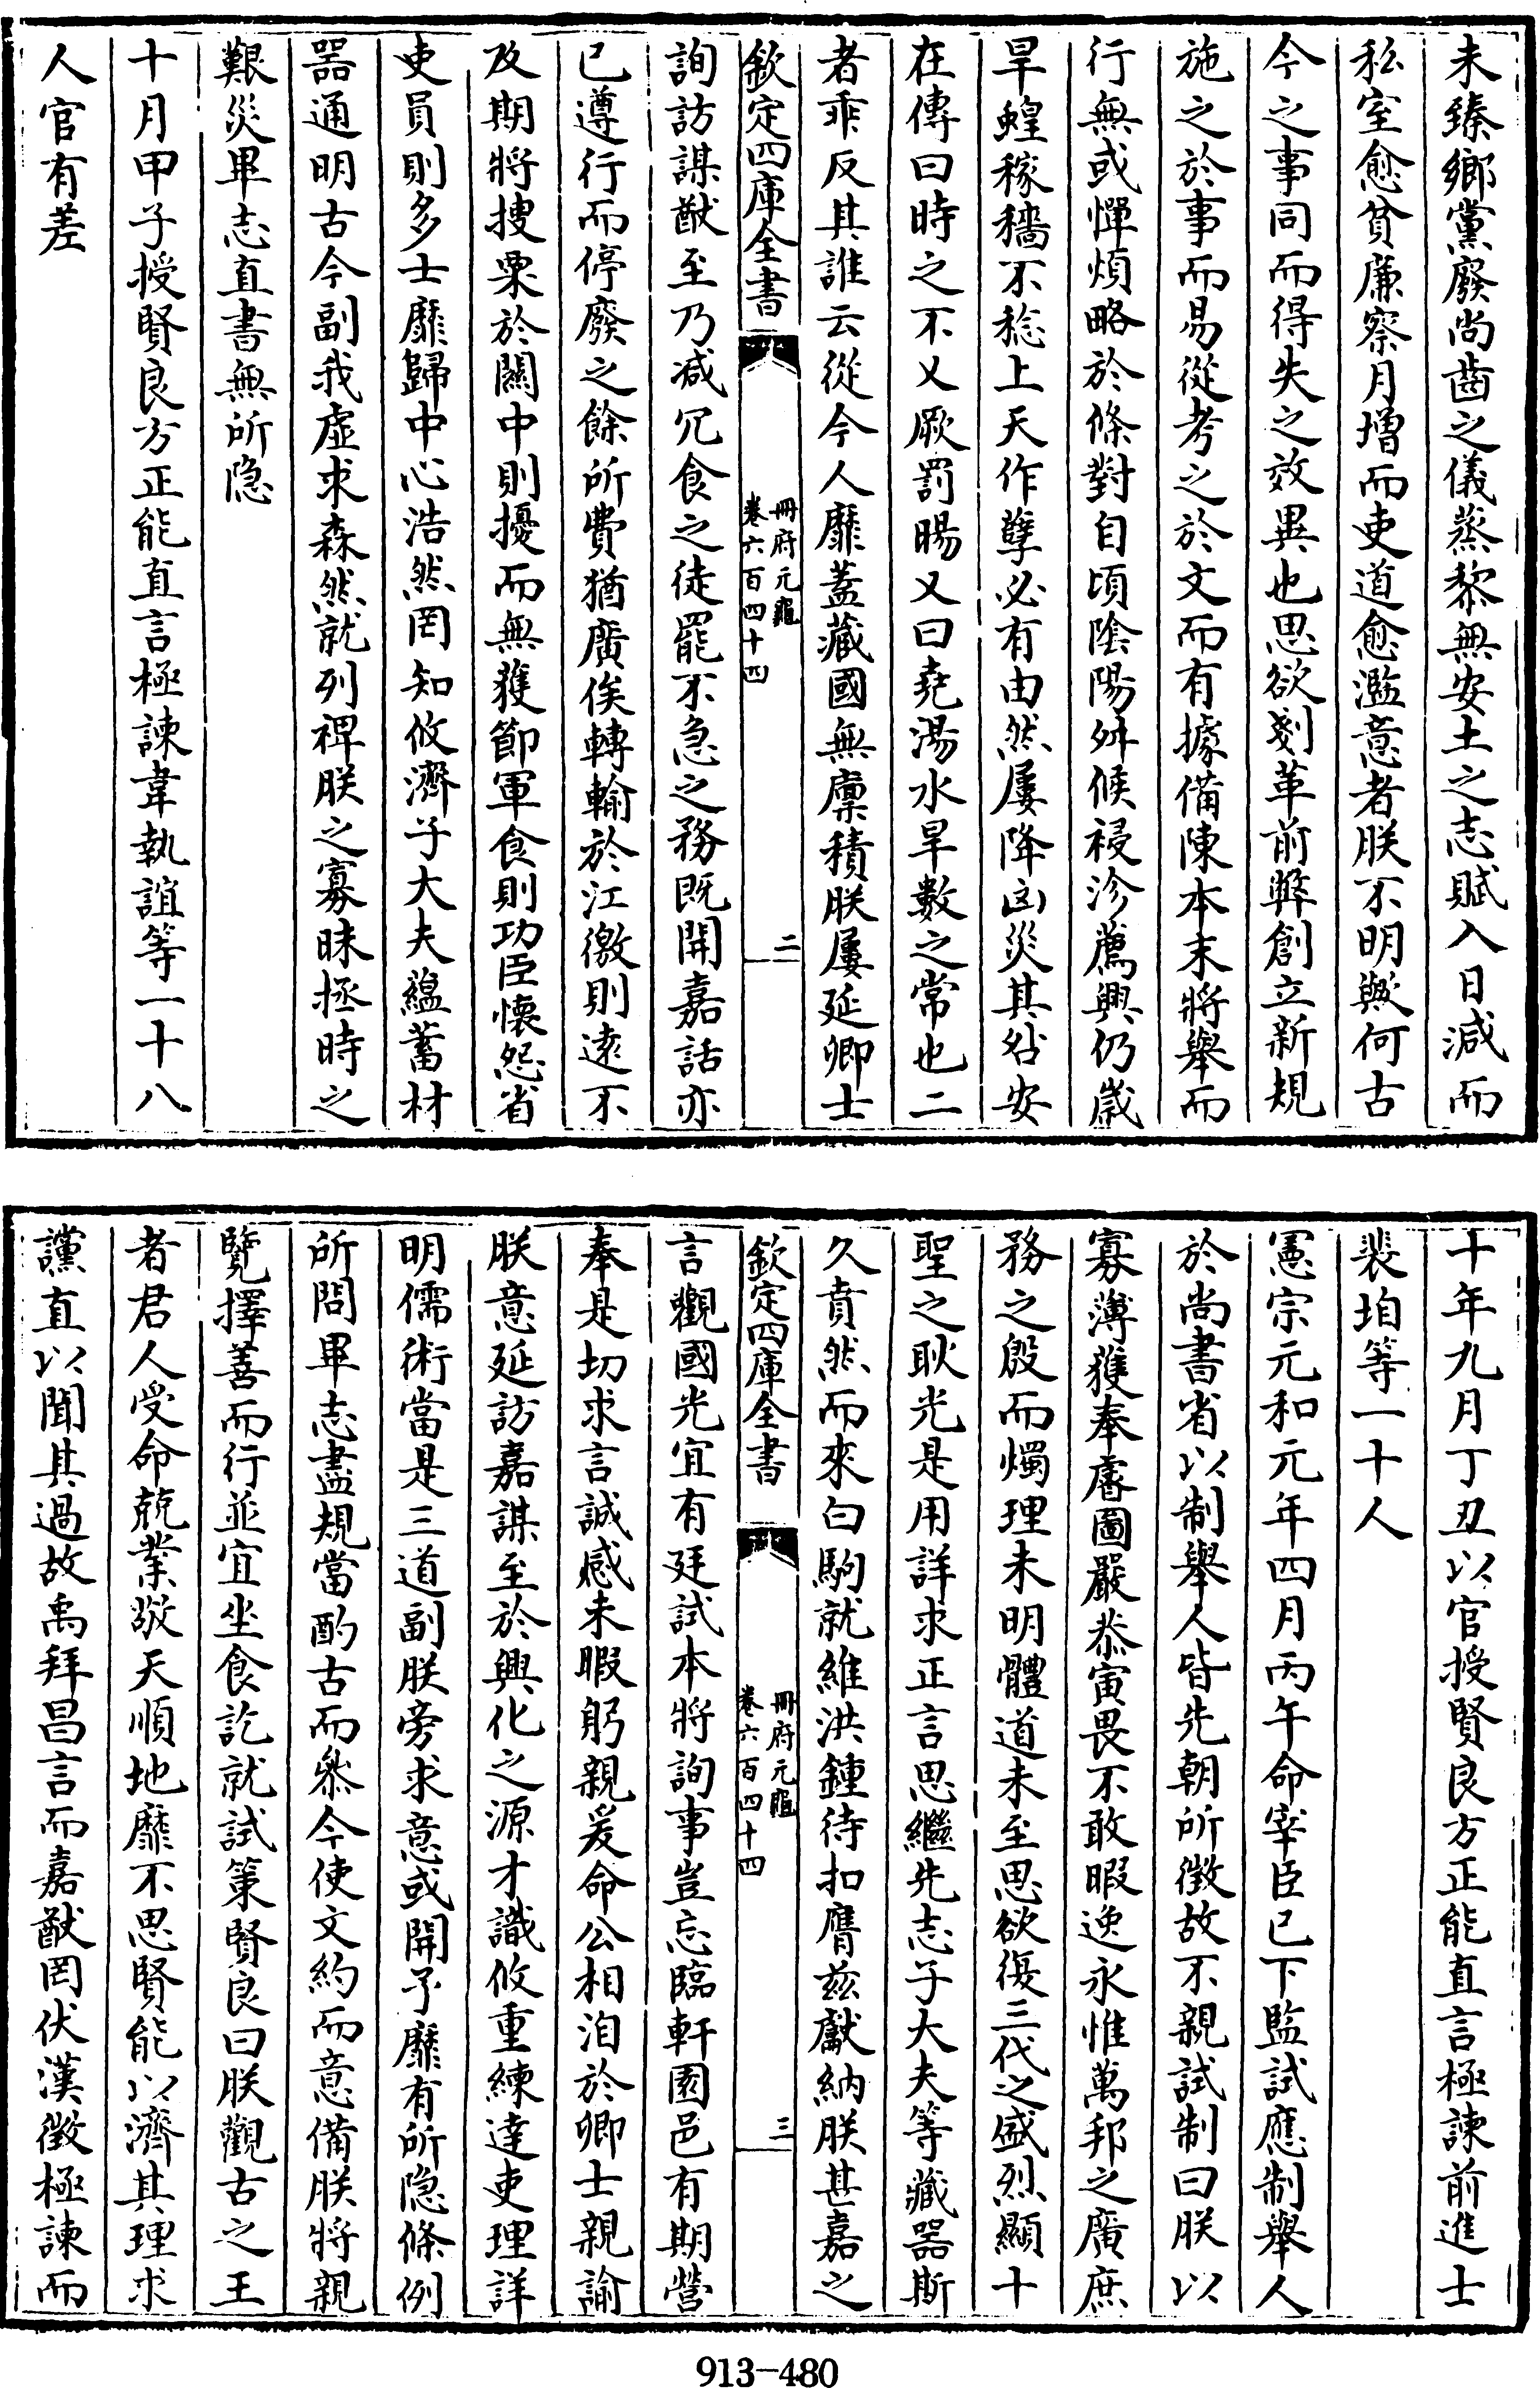 未臻鄉黨廢尚齒之儀蒸黎無安土之志賦入日減而
私室愈貧廉察月增而吏道愈濫意者朕不明歟何古
今之事同而得失之效異也思欲剗革前弊創立新規
施之於事而易從考之於文而有據備陳本末將舉而
行無或憚煩略於條對自頃陰陽舛候祲沴薦興仍歲
旱蝗稼穡不稔上天作孽必有由然屢降凶災其咎安
在傳曰時之不乂厥罰暘又曰堯湯水旱數之常也二
者乖反其誰云從今人靡蓋藏國無廩積朕屢延卿士
欽定四庫全書
冊府元龜
卷六百四十四
二
詢訪謀猷至乃減冗食之徒罷不急之務既開嘉話亦
已遵行而停廢之餘所費猶廣俟轉輸於江徼則遠不
及期將搜粟於關中則擾而無獲節軍食則功臣懷怨省
吏員則多士靡歸中心浩然罔知攸濟子大夫蘊蓄材
器通明古今副我虛求森然就列裨朕之寡昧拯時之
艱災畢志直書無所隱
十月甲子授賢良方正能直言極諫韋執誼等一十八
人官有差
十年九月丁丑以官授賢良方正能直言極諫前進士
裴垍等一十人
憲宗元和元年四月丙午命宰臣已下監試應制舉人
於尚書省以制舉人皆先朝所徵故不親試制曰朕以
寡薄獲奉睿圖嚴恭寅畏不敢暇逸永惟萬邦之廣庶
務之殷而燭理未明體道未至思欲復三代之盛烈顯十
聖之耿光是用詳求正言思繼先志子大夫等藏器斯
久賁然而來白駒就維洪鍾待扣膺茲獻納朕甚嘉之
欽定四庫全書
冊府元龜
卷六百四十四
三
言觀國光宜有廷試本將詢事豈忘臨軒園邑有期營
奉是切求言誠慼未暇躬親爰命公相洎於卿士親諭
朕意延訪嘉謀至於興化之源才識攸重練達吏理詳
明儒術當是三道副朕旁求意或開予靡有所隱條例
所問畢志盡規當酌古而叅今使文約而意備朕將親
覽擇善而行並宜坐食訖就試策賢良曰朕觀古之王
者君人受命兢業敬天順地靡不思賢能以濟其理求
讜直以聞其過故禹拜昌言而嘉猷罔伏漢徵極諫而
913-480